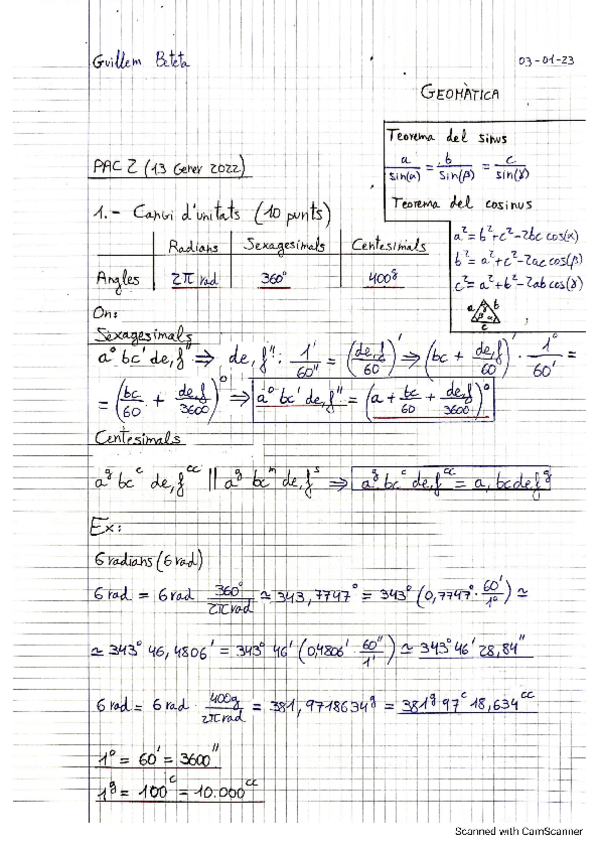 Guillem Beteta
03-01-23
GEOMÀTICA
Teorema del sinus
a/sin(α) = b/sin(β) = c/sin(γ)
Teorema del cosinus
a² = b² + c² - 2bc cos(α)
b² = a² + c² - 2ac cos(β)
c² = a² + b² - 2ab cos(γ)
a b c
PAC 2 (13 Gener 2022)
1.- Canvi d'unitats (10 punts)
Radians Sexagesimals Centesimals
Angles 2π rad 360° 400g
On:
Sexagesimals
a° bc' de,f'' ⇒ de,f'' · 1'/60'' = (de,f/60)' ⇒ (bc + de,f/60)' · 1°/60' =
= (bc/60 + de,f/3600)° ⇒ a° bc' de,f'' = (a + bc/60 + de,f/3600)°
Centesimals
a^g bc^c de,f^cc || a^g bc^m de,f^s ⇒ a^g bc^c de,f^cc = a,bcdef^g
Ex:
6 radians (6 rad)
6 rad = 6 rad · 360°/2π rad ≃ 343,7747° = 343° (0,7747° · 60'/1°) ≃
≃ 343° 46,4806' = 343° 46' (0,4806' · 60''/1') ≃ 343° 46' 28,84''
6 rad = 6 rad · 400g/2π rad = 381,9718634^g = 381^g 97^c 18,634^cc
1° = 60' = 3600''
1^g = 100^c = 10.000^cc
Scanned with CamScanner